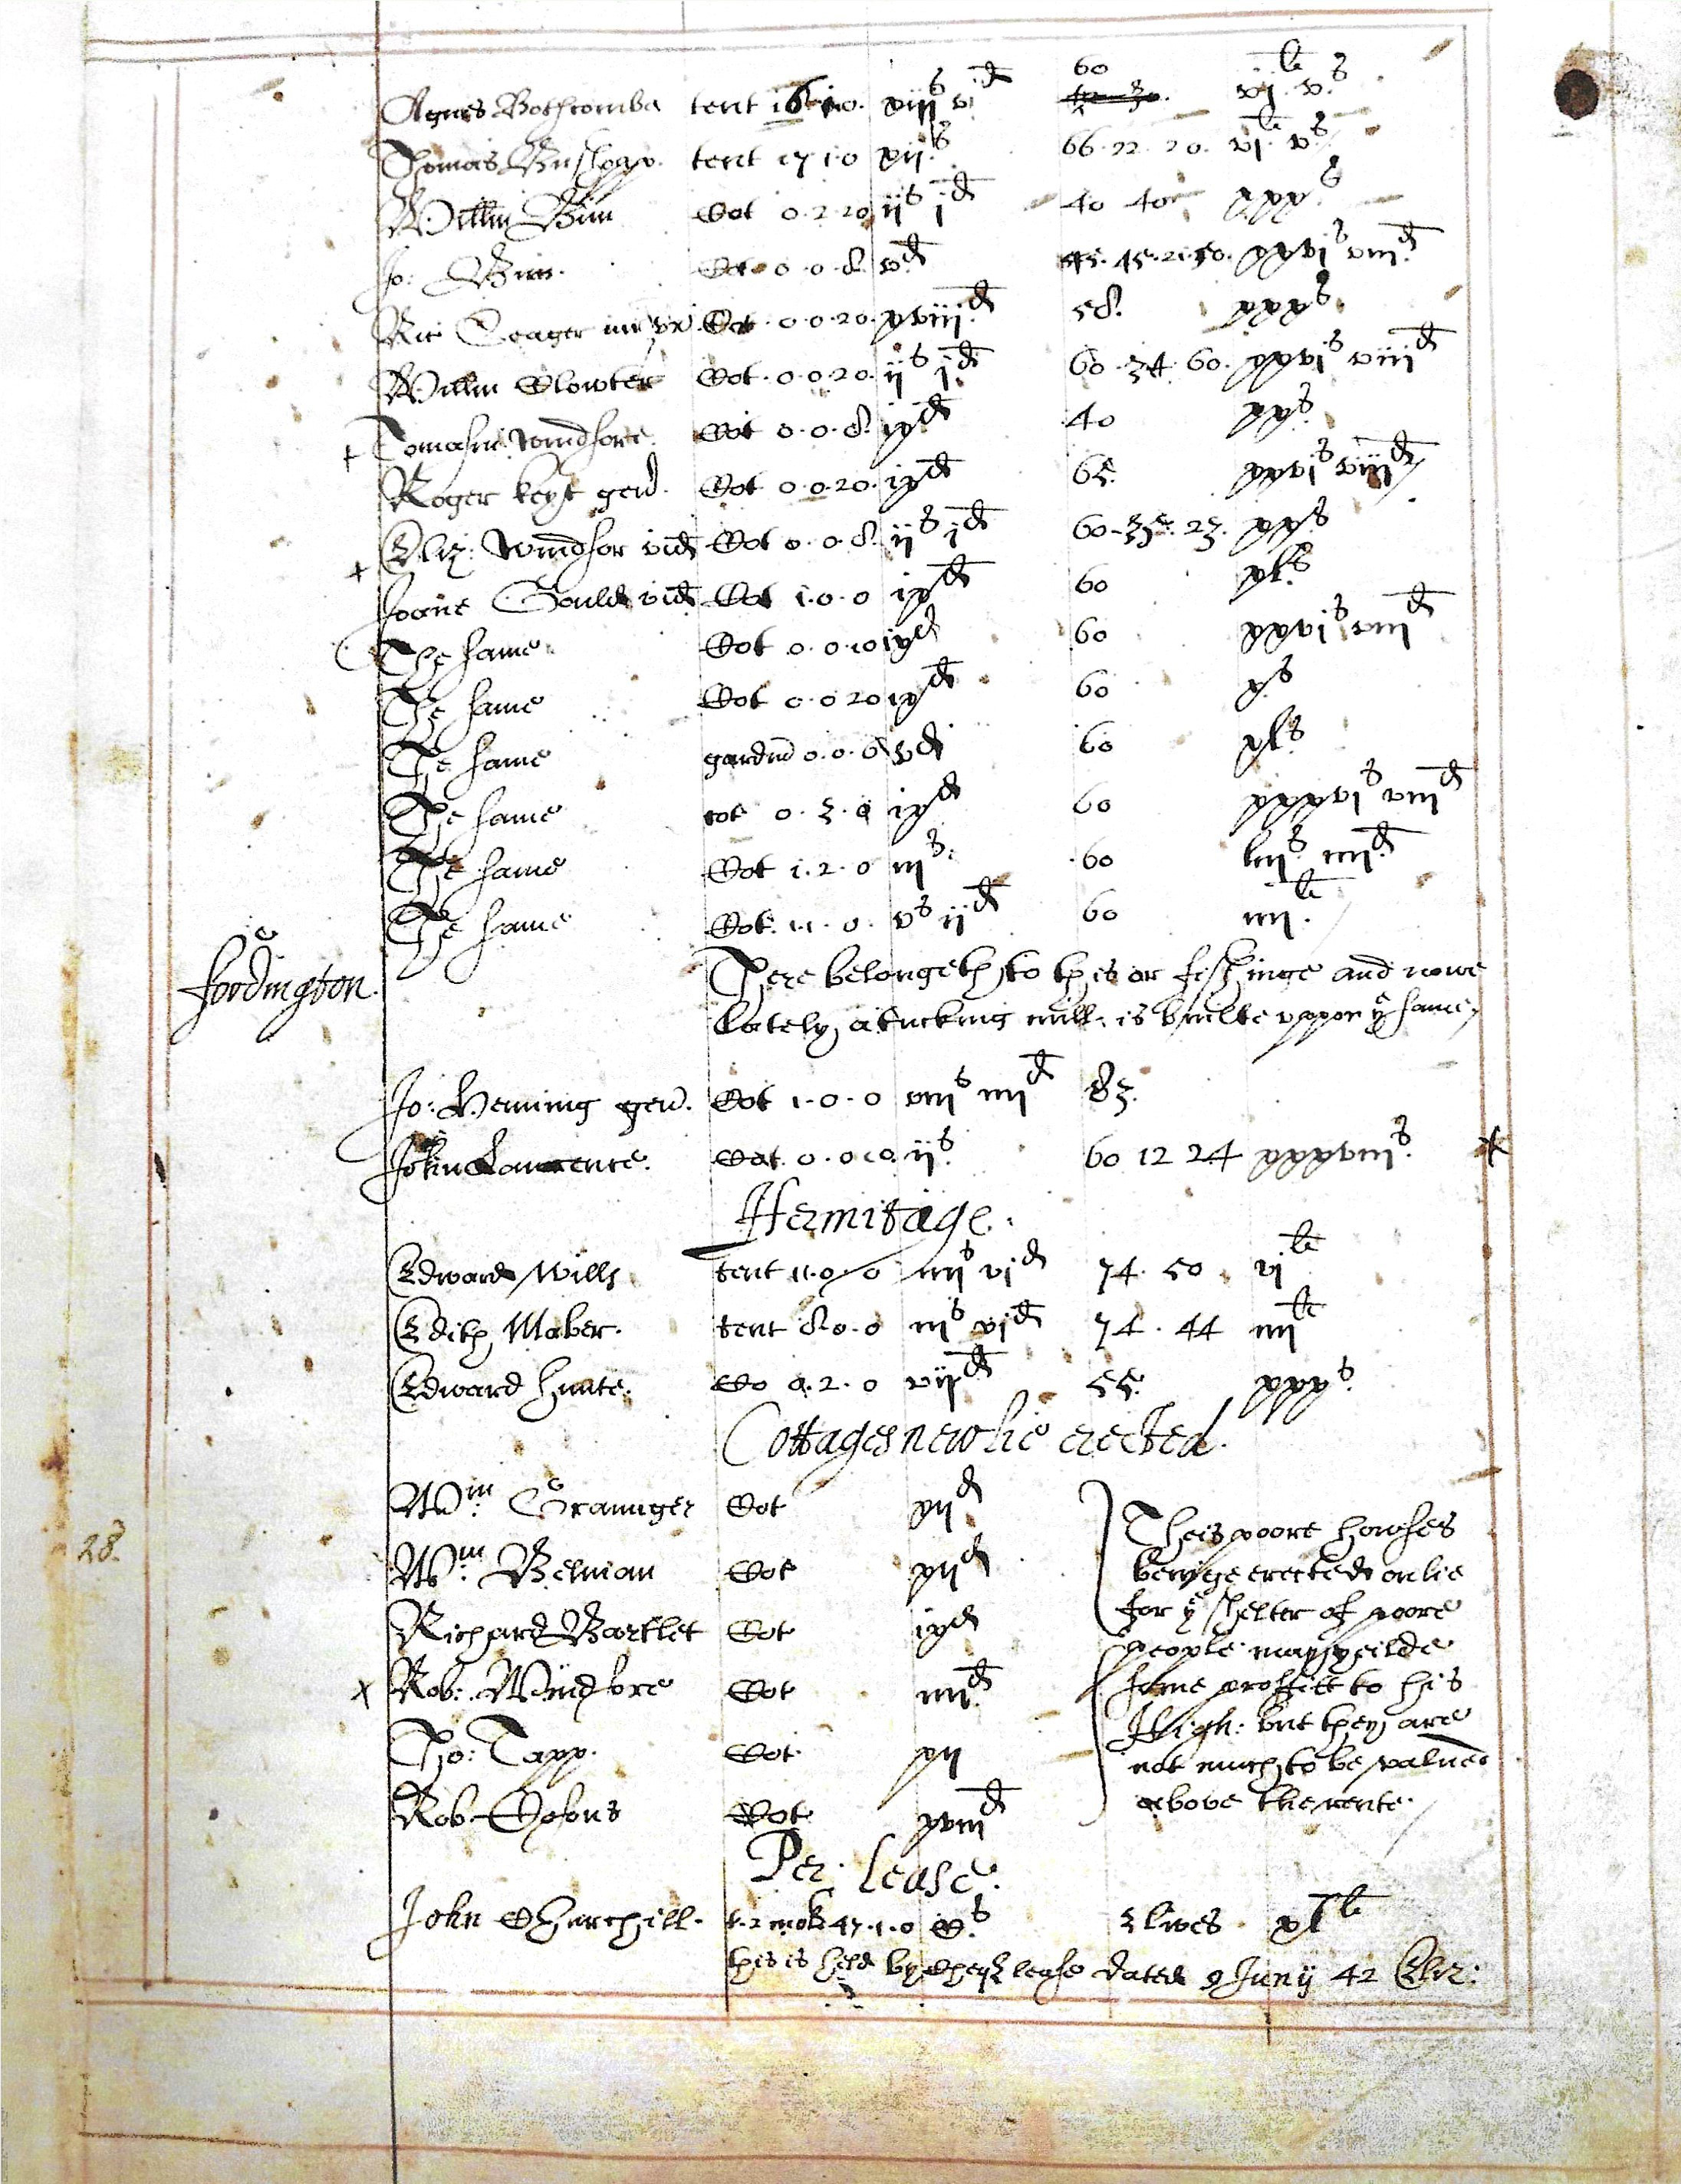 Agnes Bothcombe tent 16 1 0. xiij s vj d 60 vj li. v s.
Thomas Bushopp. tent 17 1 0 xij s. 66. 22. 20. vj li. v s
Willm Bin Cot 0. 2. 20 ij s j d 40 40 xxx s
Jo: Bin. Cot 0. 0. 8. v d 45. 45. 21. 50. xxvj s viij d
Ric Seager iur vx. Cot. 0. 0. 20. xviij d 58. xxx s.
Willm Clowter Cot. 0. 0. 20. ij s j d. 60. 34. 60. xxvj s viij d
+ Tomasin Windsore. Cot 0. 0. 8. ix d 40 xx s.
Roger Keyt gen. Cot 0. 0. 20. ix d 65. xxvj s viij d
+ Eliz: Windsor vid Cot 0. 0. 8. ij s j d 60. 35. 23. xx s
Joane Gould vid Cot 1. 0. 0 ix d 60 xl s
The same. Cot 0. 0. 10 ix d 60 xxvj s viij d
The same Cot 0. 0 20 ix d 60 x s
The same gardin 0. 0. 6 v d 60 xl s.
The same cot 0. 3. 0 ix d 60 xxxvj s viij d
The same Cot 1. 2. 0 iij s. 60 liij s. iiij d.
The same Cot. 11. 0. v s ij d 60 iiij li.
fordington. There belongeth to this ar fishinge and nowe
lately a tucking mill is builte uppon ye same,
Jo: Heming gen. Cot 1. 0. 0 viij s iiij d 83.
John Lawrence. Cot. 0. 0 10. ij s. 60 12 24 xxxviij s. *
Hermitage.
Edward Wills tent 11. 0. 0 iiij s vj d 74. 50. vj li
Edith Maber. tent 8. 0. 0 iij s vj d 74. 44 iiij li
Edward Hunte. Co 0. 2. 0 viij d 55. xxx s.
Cottages newlie erected.
Wm. Grainiger Cot xij d
28. Wm. Belman Cot xij d
Richard Bartlet Cot ix d
x Rob: Windsore Cot iiij d
Tho: Tapp. Cot. xij
Rob. Cot. xviij d
Theis poore howses
beinge erected onlie
for ye shelter of poore
people may yeilde
some proffitt to his
High: but they are
not much to be valued
above the rente.
Per Lease.
John Churchill. 47. 1. 0 3 lives. xl li
this is held by lease dated 9 Junij 42 Eliz: